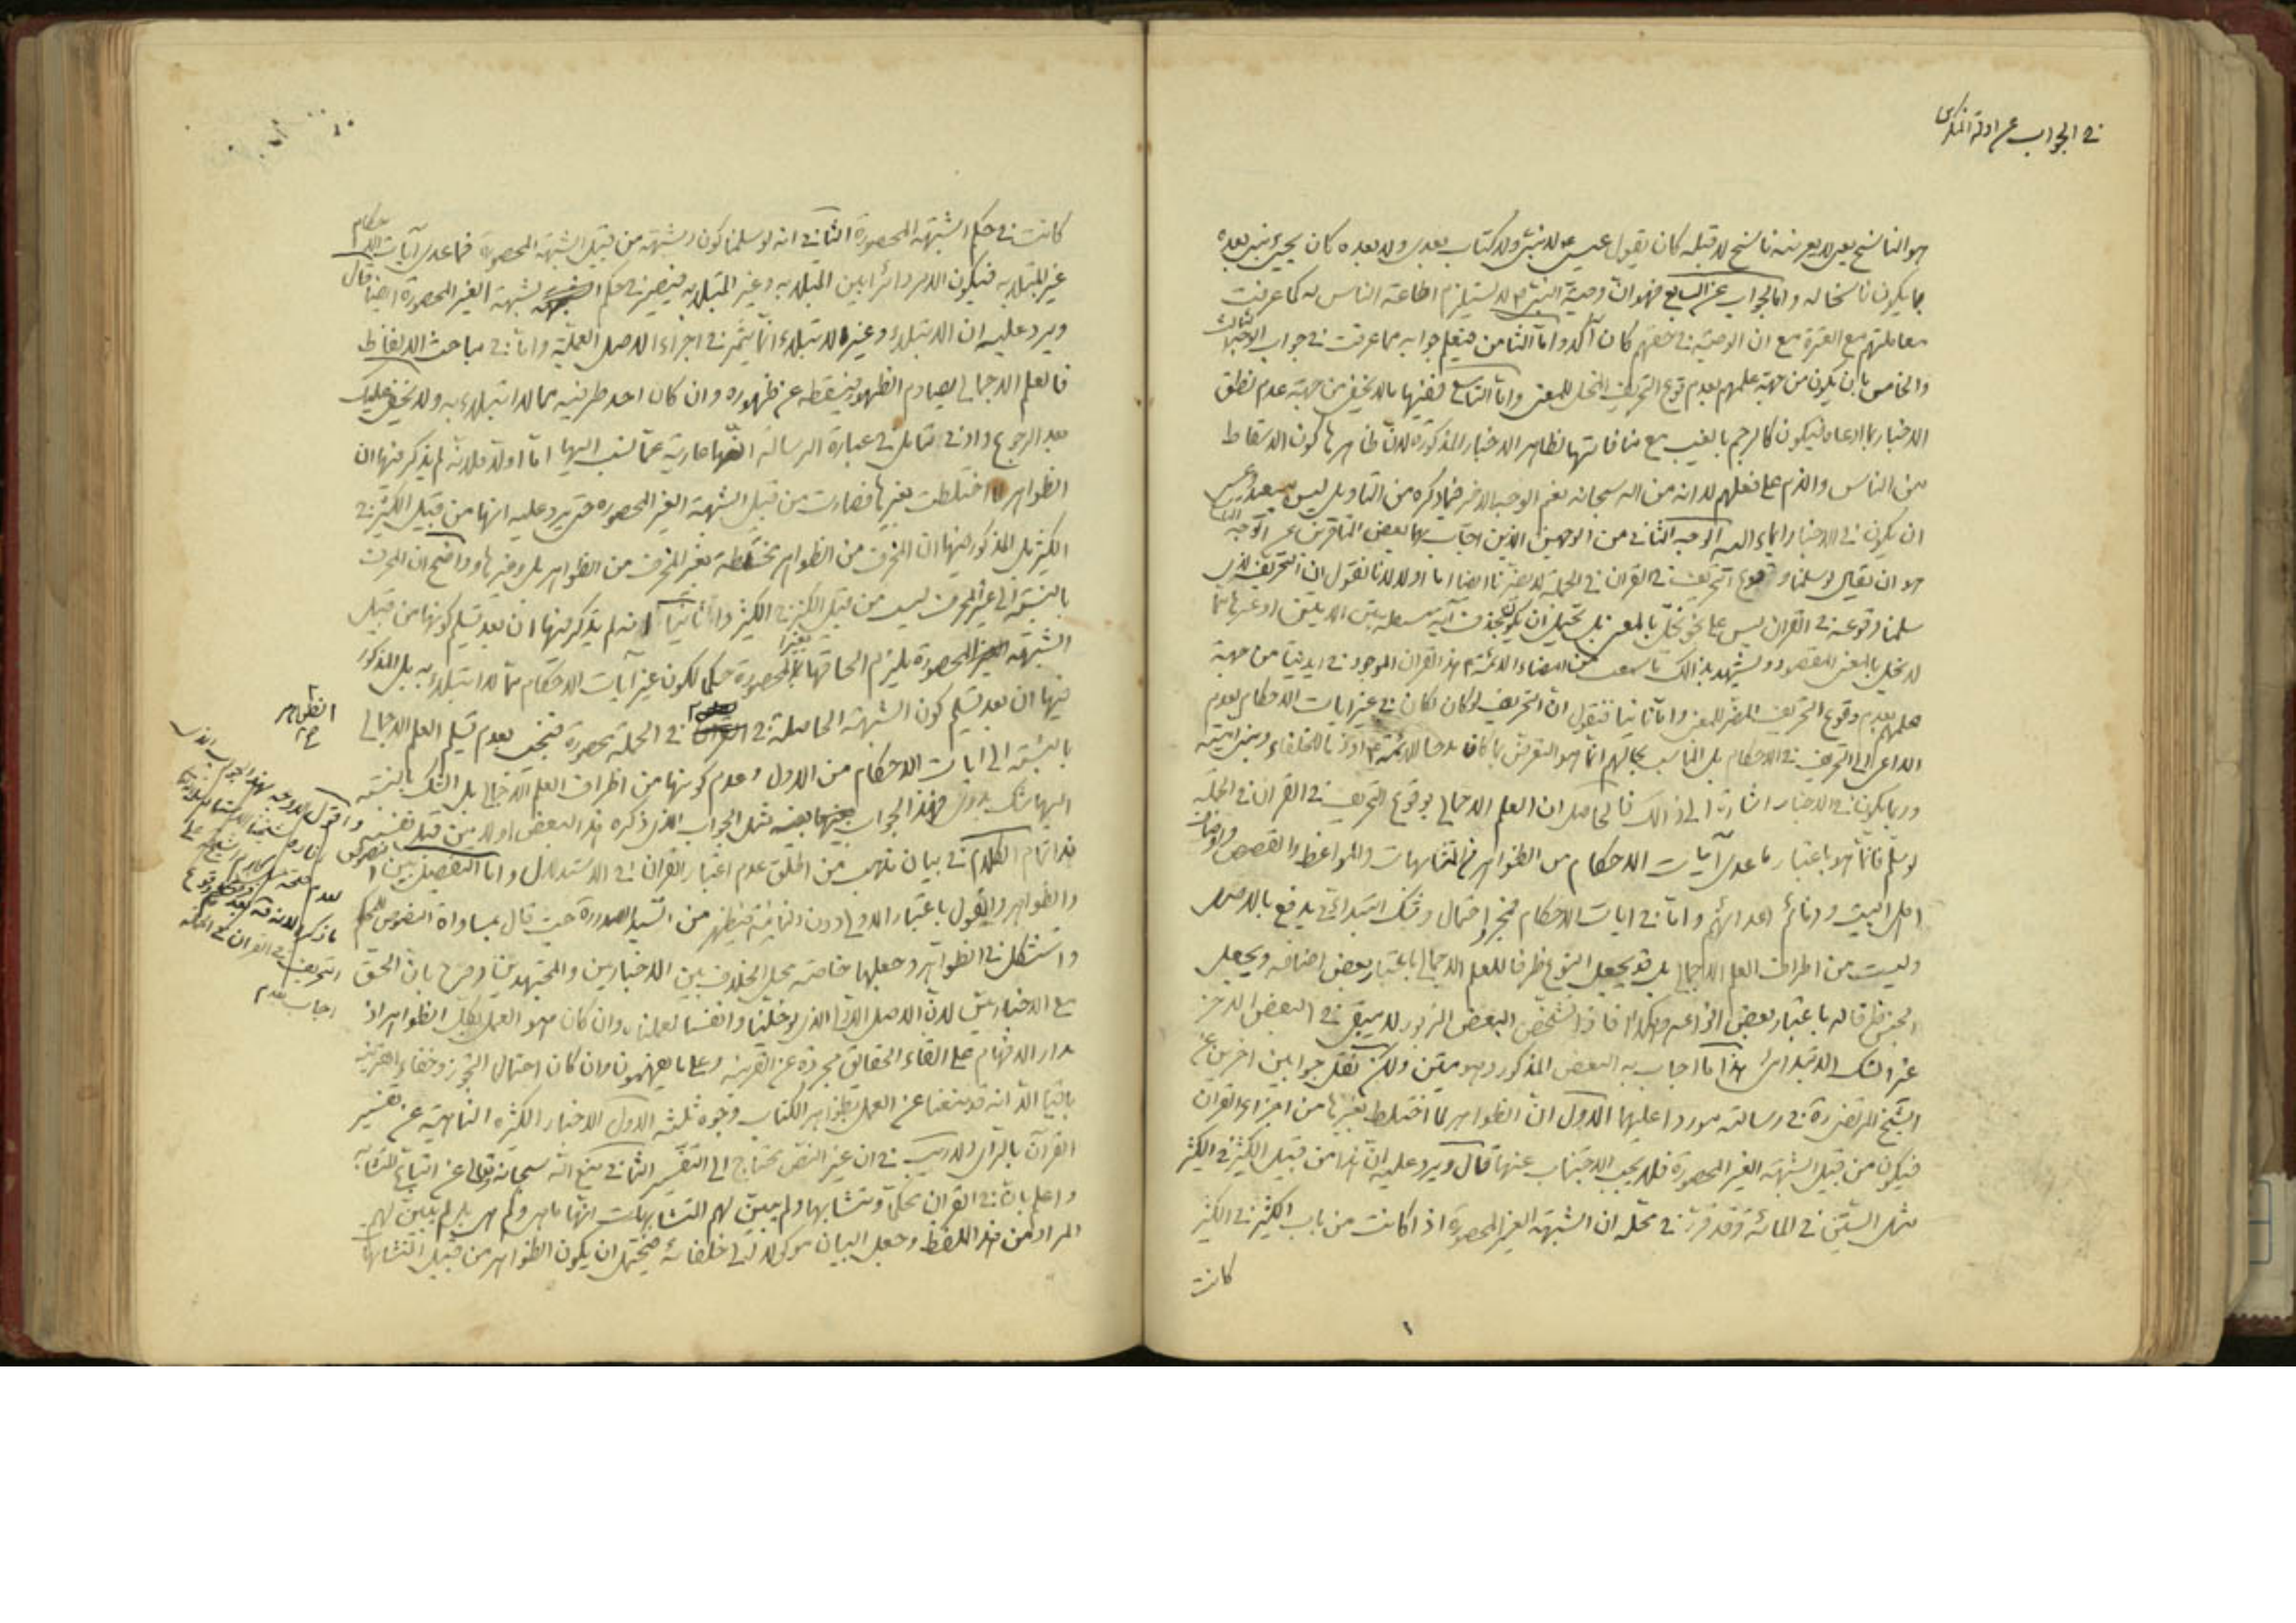 في الجواب عن ادلة المنكرين
هو الناسخ بعين لا يعرضه ناسخ لا قبله كان يقول عيسى لا نبي ولا كتاب بعدي ولا بعده كان يجيء نبي بعده
بما يكون ناسخا له واما الجواب عن السابع فهو ان وصية النبي ص لا يستلزم اطاعة الناس له كما عرفت
معاملتهم مع العترة مع ان الوصية في حقهم كان آكد واما الثامن فيعلم جوابه مما عرفت في جواب الاخبار الثالث
والخامس بان يكون من جهة علمهم بعدم وقوع التحريف المخل للمعنى واما التاسع ففيها ما لا يخفى من جهة عدم نطق
الاخبار بما ادعاه فيكون كالرجم بالغيب مع منافاتها لظاهر الاخبار المذكورة لان ظاهرها كون الاسقاط
من الناس والذم على فعلهم لا انه من الله سبحانه نعم الوجه الاخر فما ذكره من التاويل ليس ببعيد
ان يكون في الاخبار ايماء اليه الوجه الثاني من الوجهين الذين اجاب بهما بعض المتأخرين عن الوجه الثالث
هو ان يقال لو سلمنا وقوع التحريف في القران في الجملة لا يضرنا ايضا اما اولا لانا نقول ان التحريف الذي
سلمنا وقوعه في القران ليس على نحو يخل بالمعنى بل يحتمل ان يكون بحذف آية مستقلة بين الايتين او غيرها مما
لا يخل بالمعنى المقصود ويشهد بذلك ما سمعت من امضاء الائمة ع هذا القران الموجود في ايدينا من جهة
علمهم بعدم وقوع التحريف المضر للمعنى واما ثانيا فنقول ان التحريف لو كان لكان في غير ايات الاحكام لعدم
الداعي الى التحريف في الاحكام بل المناسب بحالهم انما هو التعرض بما كان مدحا للائمة ع او ذما للخلفاء وبني امية
وربما يكون في الاخبار اشارة الى ذلك فالحاصل ان العلم الاجمالي بوقوع التحريف في القران في الجملة
لو سلم فانما هو باعتبار ما عدى آيات الاحكام من الظواهر في المتشابهات والمواعظ والقصص واوصاف
اهل البيت وذمائم اعدائهم واما في ايات الاحكام فمجرد احتمال وشك ابتدائي يدفع بالاصل
وليست من اطراف العلم الاجمالي بل قد يجعل النوع ظرفا للعلم الاجمالي باعتبار بعض اصنافه ويجعل
الجنس ظرفا له باعتبار بعض انواعه وهكذا فاذا تشخص البعض المزبور لا يبقى في البعض الاخر
غير الشك الابتدائي هذا ما اجاب به البعض المذكور وهو متين ولكن نقل جوابين اخرين عن
الشيخ المرتضى ره في رسالته موردا عليهما الاول ان الظواهر لما اختلط بغيرها من اجزاء القران
فيكون من قبيل الشبهة الغير المحصورة فلا يجب الاجتناب عنها قال ويرد عليه ان هذا من قبيل الكثير في الكثير
مثل الستين في المائة وقد قرر في محله ان الشبهة الغير المحصورة اذا كانت من باب الكثير في الكثير
كانت
كانت في حكم الشبهة المحصورة الثاني انه لو سلمنا كون الشبهة من قبيل الشبهة المحصورة فما عدى آيات الاحكام
غير المبتلى به فيكون الامر دائرا بين المبتلى به وغير المبتلى به فيصير في حكم الشبهة الغير المحصورة ايضا قال
ويرد عليه ان الابتلاء وغير الابتلاء انما يثمر في اجراء الاصل العملية واما في مباحث الالفاظ
فالعلم الاجمالي يصادم الظهور فيسقطه عن ظهوره وان كان احد طرفيه مما لا ابتلاء به ولا يخفى عليك
بعد الرجوع وادنى تأمل في عبارة الرسالة انها عارية عما نسب اليها اما اولا فلانه لم يذكر فيها ان
الظواهر لما اختلطت بغيرها فصارت من قبيل الشبهة الغير المحصورة حتى يرد عليه انها من قبيل الكثير في
الكثير بل المذكور فيها ان المحرف من الظواهر مختلطة بغير المحرف من الظواهر بل وغيرها وواضح ان المحرف
بالنسبة الى غير المحرف ليست من قبيل الكثير في الكثير واما ثانيا فانه لم يذكر فيها ان بعد تسليم كونها من قبيل
الشبهة المحصورة يلزم الحاقها بغير المحصورة حكما لكون غير آيات الاحكام مما لا ابتلاء به بل المذكور
فيها ان بعد تسليم كون الشبهة الحاصلة في في الجملة محصورة فنجيب بعدم تسليم العلم الاجمالي
بالنسبة الى ايات الاحكام من الاول وعدم كونها من اطراف العلم الاجمالي بل الشك بالنسبة
اليها شك بدوي فهذا الجواب مثل الجواب الذي ذكره هذا البعض اولا من قبل نفسه
هذا تمام الكلام في بيان مذهب من اطلق عدم اعتبار القران في الاستدلال واما التفصيل بين النصوص
والظواهر والقول باعتبار الاولى دون الثانية فيظهر من السيد الصدر ره حيث قال بمساواة النصوص للمحكم
واستشكل في الظواهر وجعلها خاصة محل الخلاف بين الاخباريين والمجتهدين وصرح بان الحق
مع الاخباريين لان الاصل الاولي الذي لو خلينا وانفسنا لعملناه وان كان هو العمل بكل الظواهر اذ
مدار الافهام على القاء الحقايق مجردة عن القرينة وعلى ما يفهمون وان كان احتمال التجوز وخفاء القرينة
باقيا الا انه قد منعنا عن العمل بظواهر الكتاب وجوه ثلثة الاول الاخبار الكثيرة الناهية عن تفسير
القرآن بالرأي ولا ريب في ان غير النص محتاج الى التفسير الثاني منع الله سبحانه وتعالى عن اتباع المتشابه
واعلم بان في القران محكما ومتشابها ولم يبين لهم المتشابهات انها ما هي وكم هي بل لم يبين لهم
المراد من هذا اللفظ وجعل البيان موكولا الى خلفائه فيحتمل ان يكون الظواهر من قبيل المتشابهات
الظواهر
واقول لا وجه لهذا الجواب الذي
التحريف في القران في الجملة